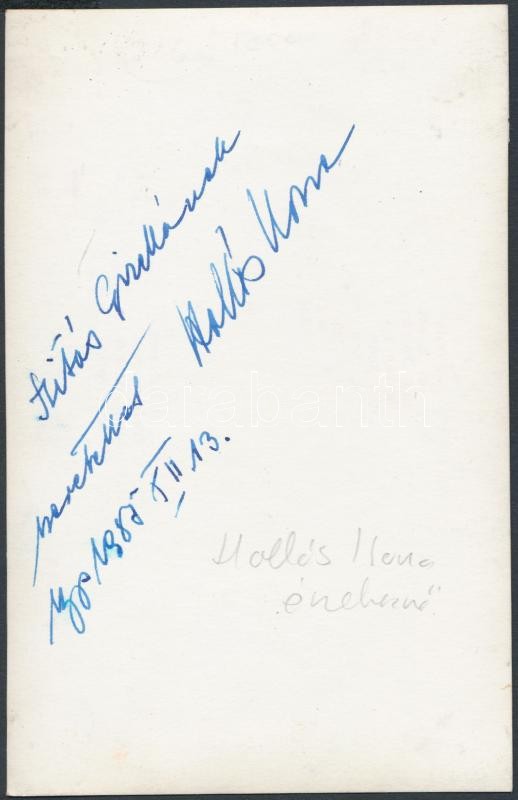 Szitás Gizikának
szeretettel Hollós Ilona
Bp. 1985 XII 13.
Hollós Ilona
énekesnő
darabanth